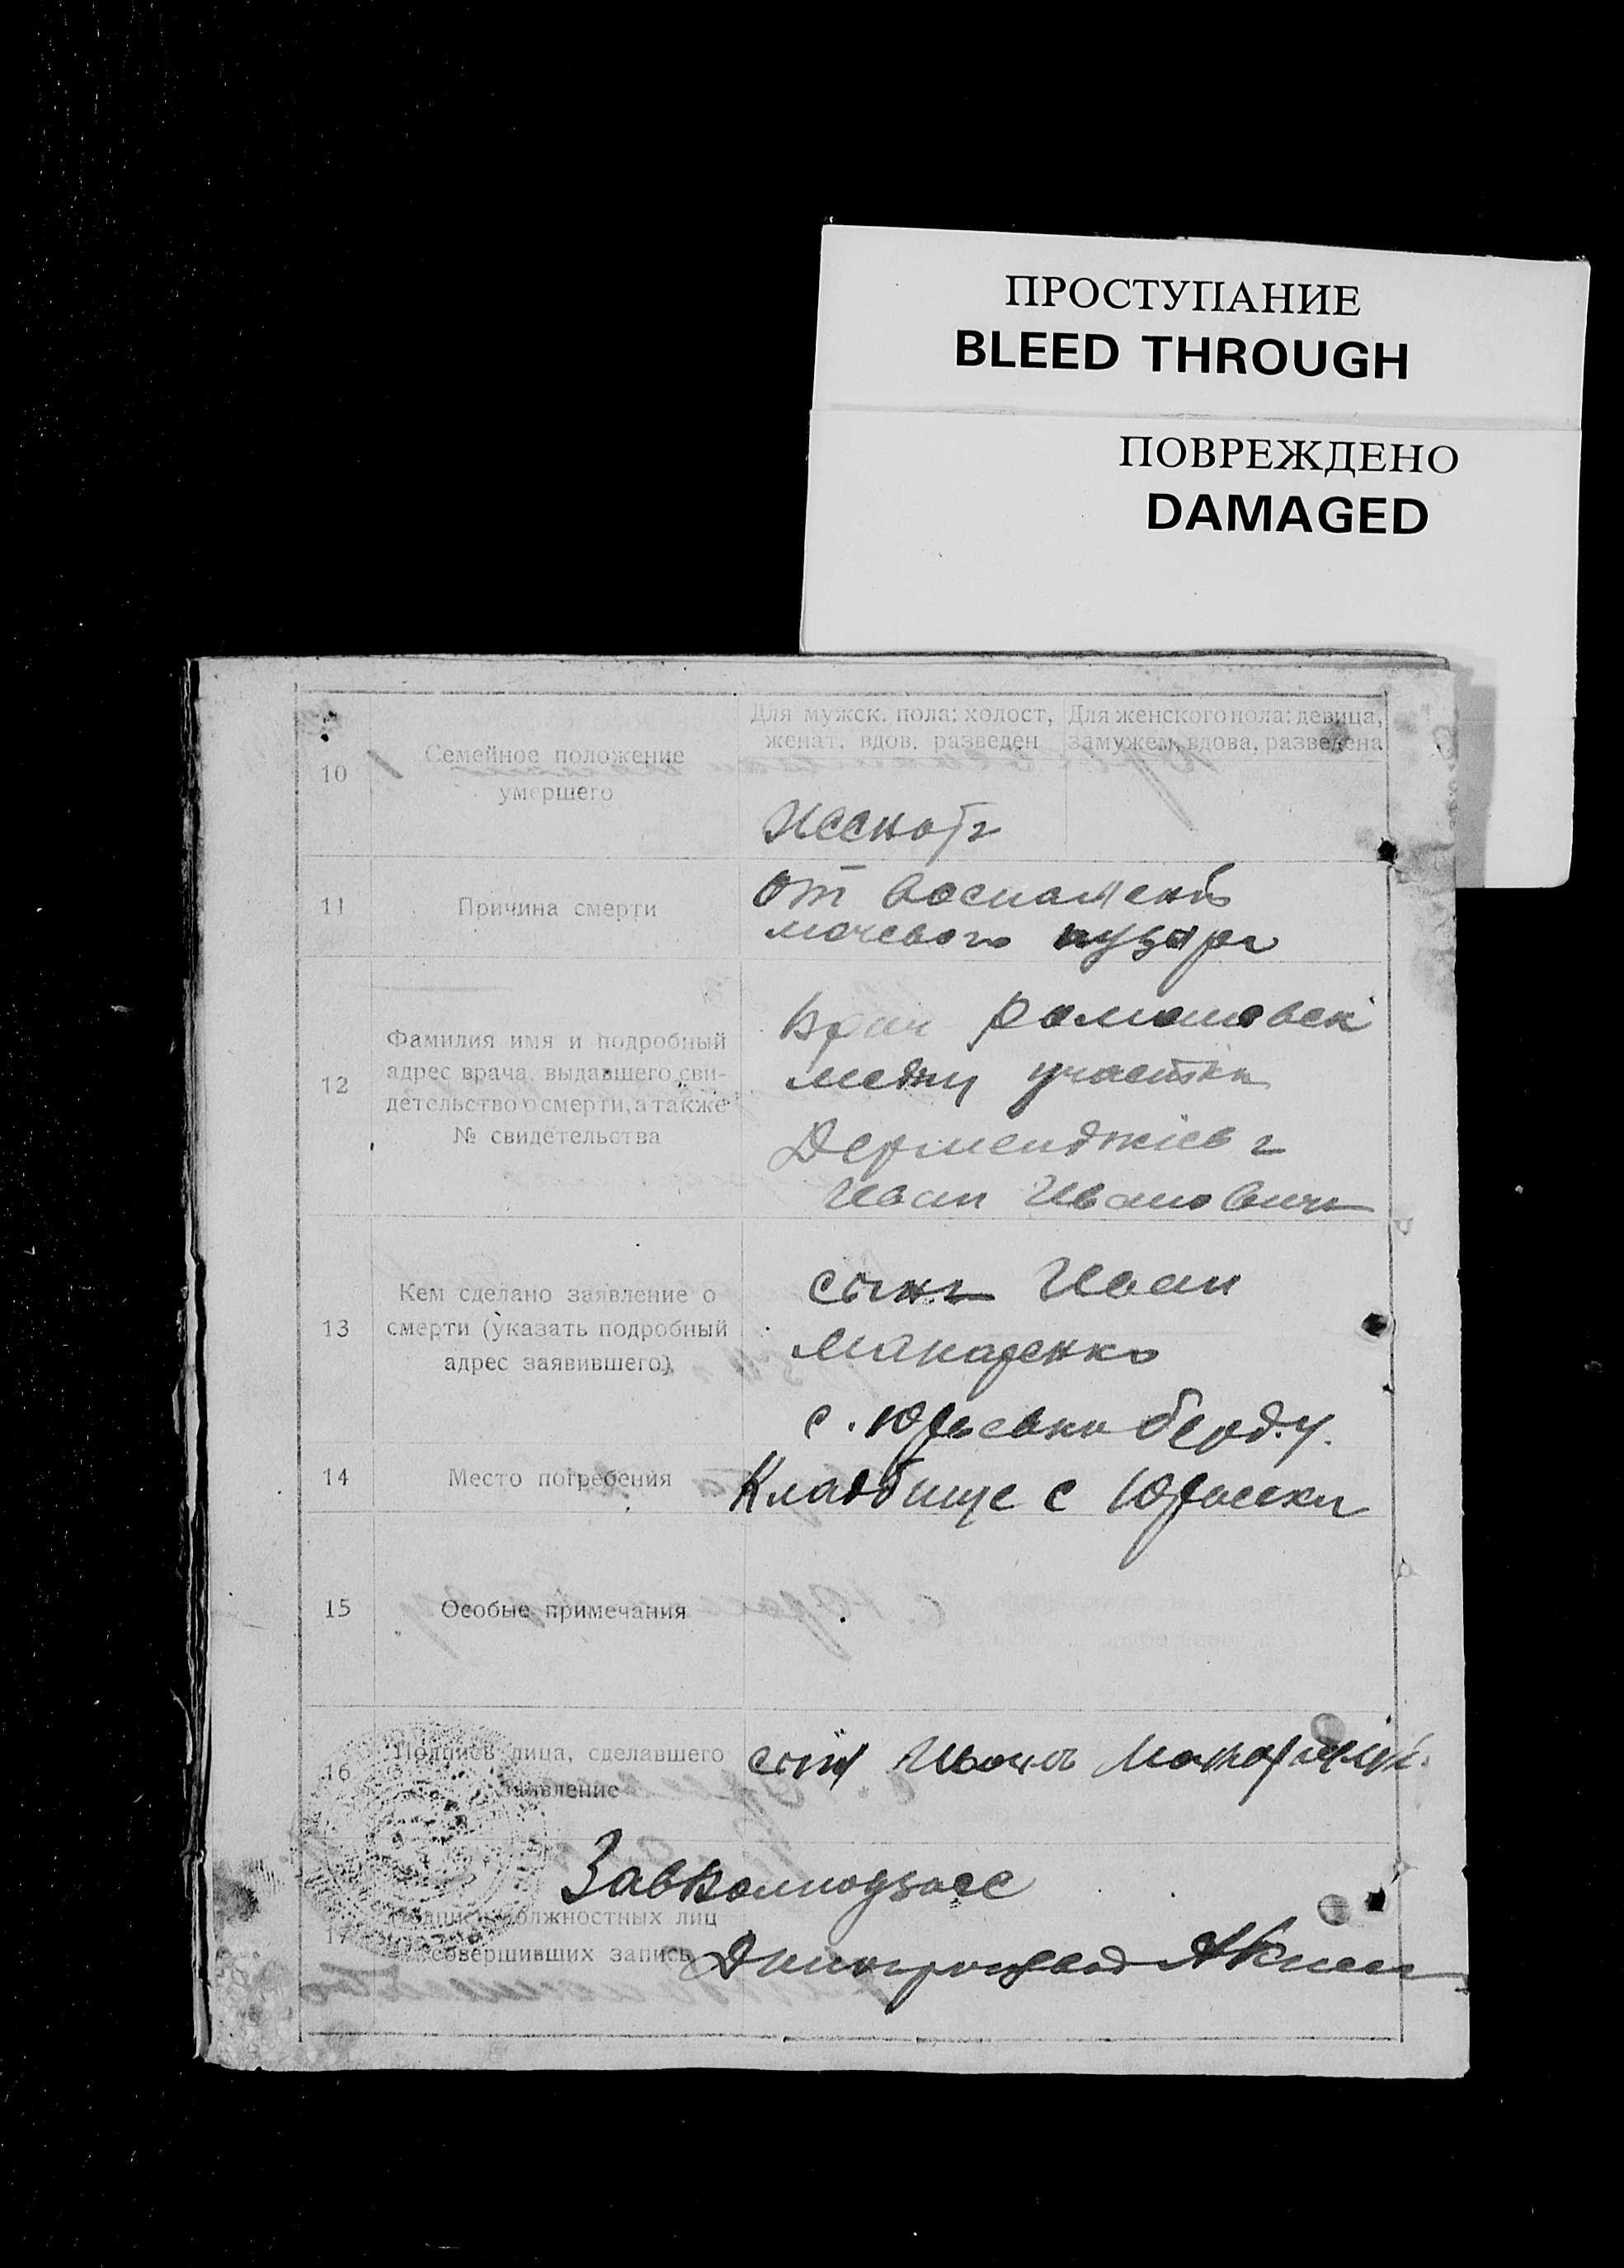 ПРОСТУПАНИЕ
BLEED THROUGH
ПОВРЕЖДЕНО
DAMAGED
Для мужск. пола: холост,
женат, вдов, разведен
Для женского пола: девица,
замужем, вдова, разведена
10
Семейное положение
умершего
11
Причина смерти
от
мочевого пузыря
12
Фамилия имя и подробный
адрес врача, выдавшего сви-
детельство о смерти, а также
№ свидетельства
Врач Романовск
участка
Дерменджіев
Иван Иванович
13
Кем сделано заявление о
смерти (указать подробный
адрес заявившего)
сынъ Иван
Макаренко
с. Юрьевки берд. у.
14
Место погребения
Кладбище с Юрьевки
15
Особые примечания
16
Подпись лица, сделавшего
заявление
сын Иванъ
17
Подписи должностных лиц
совершивших запись